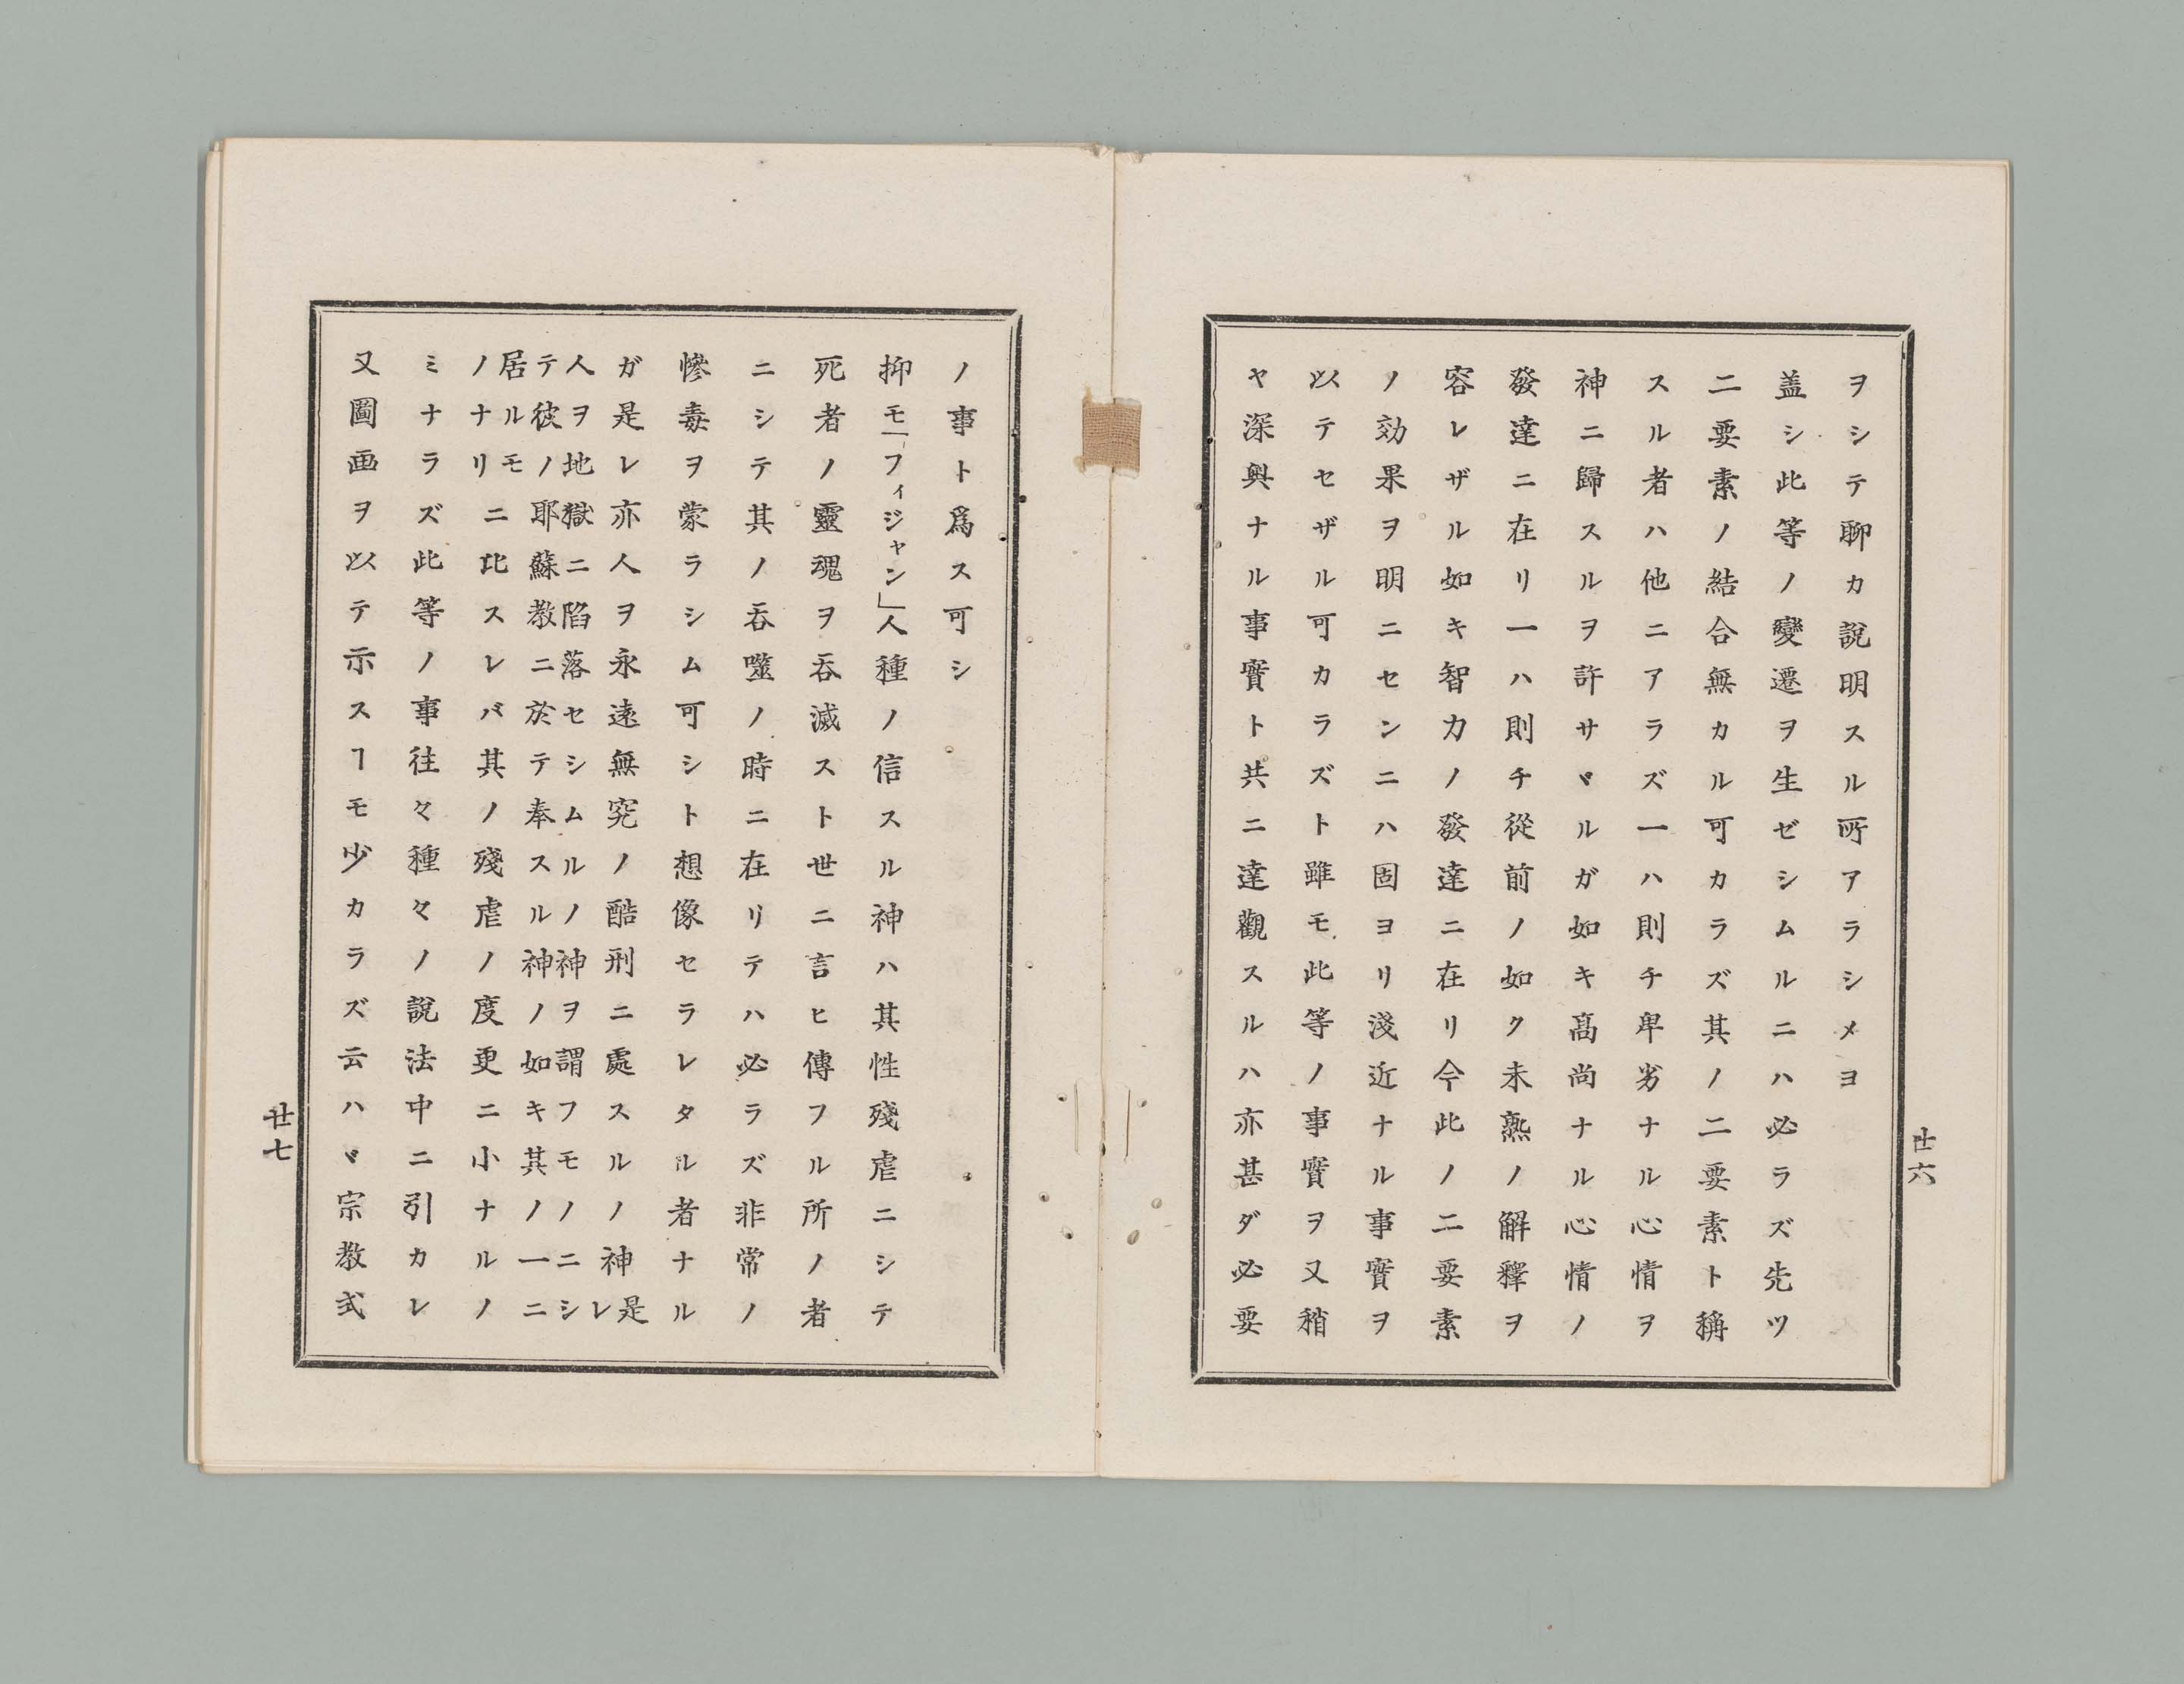 廿六
ヲシテ聊カ說明スル所アラシメヨ
盖シ此等ノ變遷ヲ生ゼシムルニハ必ラズ先ツ
二要素ノ結合無カル可カラズ其ノ二要素ト稱
スル者ハ他ニアラズ一ハ則チ卑劣ナル心情ヲ
神ニ歸スルヲ許サヾルガ如キ髙尚ナル心情ノ
發達ニ在リ一ハ則チ從前ノ如ク未熟ノ解釋ヲ
容レザル如キ智力ノ發達ニ在リ今此ノ二要素
ノ効果ヲ明ニセンニハ固ヨリ淺近ナル事實ヲ
以テセザル可カラズト雖モ此等ノ事實ヲ又稍
ヤ深奥ナル事實ト共ニ達觀スルハ亦甚ダ必要
ノ事ト爲ス可シ
抑モ「フィジャン」人種ノ信スル神ハ其性殘虐ニシテ
死者ノ靈魂ヲ吞滅スト世ニ言ヒ傳フル所ノ者
ニシテ其ノ吞噬ノ時ニ在リテハ必ラズ非常ノ
慘毒ヲ蒙ラシム可シト想像セラレタル者ナル
ガ是レ亦人ヲ永遠無究ノ酷刑ニ處スルノ神是レ
人ヲ地獄ニ陷落セシムルノ神ヲ謂フモノニシ
テ彼ノ耶蘇教ニ於テ奉スル神ノ如キ其ノ一ニ
居ルモ
ノナリニ比スレバ其ノ殘虐ノ度更ニ小ナルノ
ミナラズ此等ノ事往々種々ノ說法中ニ引カレ
又圖画ヲ以テ示スヿモ少カラズ云ハヾ宗教式
廿七